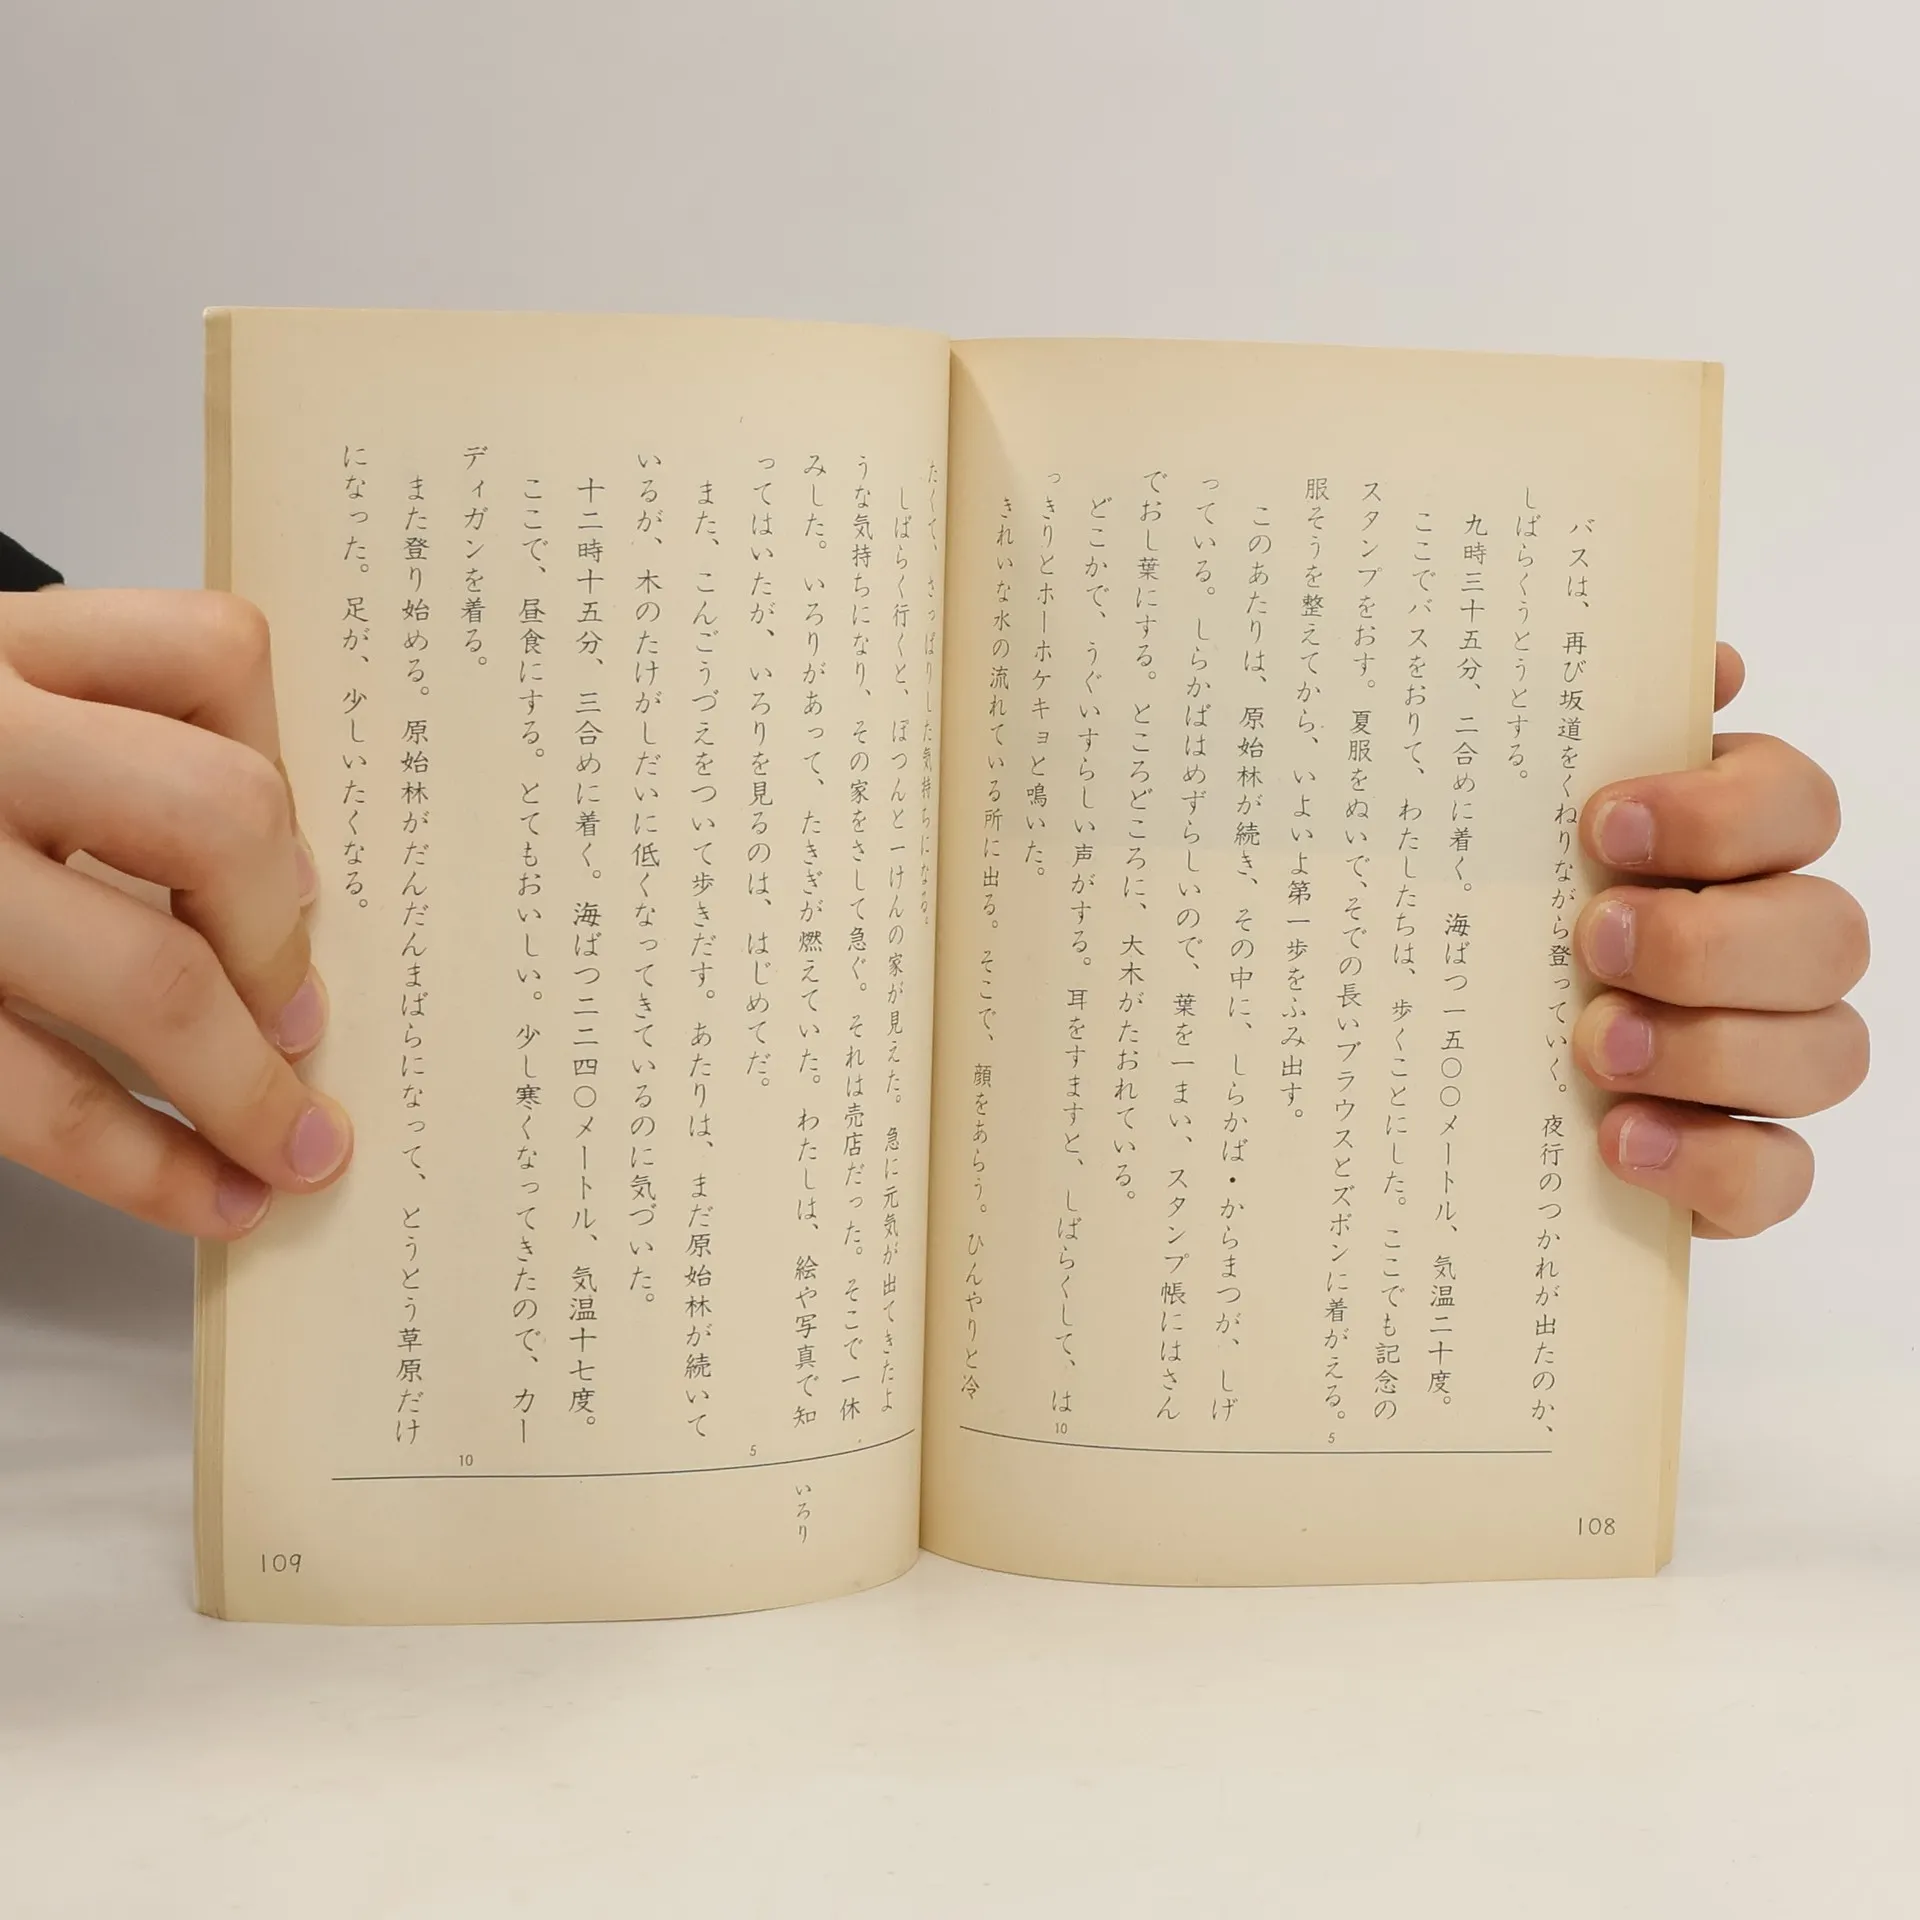 バスは、再び坂道をくねりながら登っていく。夜行のつかれが出たのか、
しばらくうとうとする。
九時三十五分、二合めに着く。海ばつ一五〇〇メートル、気温二十度。
ここでバスをおりて、わたしたちは、歩くことにした。ここでも記念の
スタンプをおす。夏服をぬいで、そでの長いブラウスとズボンに着がえる。
服そうを整えてから、いよいよ第一歩をふみ出す。
このあたりは、原始林が続き、その中に、しらかば・からまつが、しげ
っている。しらかばはめずらしいので、葉を一まい、スタンプ帳にはさん
でおし葉にする。ところどころに、大木がたおれている。
どこかで、うぐいすらしい声がする。耳をすますと、しばらくして、は
っきりとホーホケキョと鳴いた。
きれいな水の流れている所に出る。そこで、顔をあらう。ひんやりと冷
5
10
108
たくて、さっぱりした気持ちになる。
しばらく行くと、ぽつんと一けんの家が見えた。急に元気が出てきたよ
うな気持ちになり、その家をさして急ぐ。それは売店だった。そこで一休
みした。いろりがあって、たきぎが燃えていた。わたしは、絵や写真で知
ってはいたが、いろりを見るのは、はじめてだ。
また、こんごうづえをついて歩きだす。あたりは、まだ原始林が続いて
いるが、木のたけがしだいに低くなってきているのに気づいた。
十二時十五分、三合めに着く。海ばつ二二四〇メートル、気温十七度。
ここで、昼食にする。とてもおいしい。少し寒くなってきたので、カー
ディガンを着る。
また登り始める。原始林がだんだんまばらになって、とうとう草原だけ
になった。足が、少しいたくなる。
5
10
いろり
109